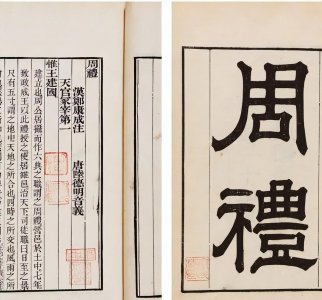 周禮
漢鄭康成注 唐陸德明音義
天官冢宰第一
惟王建國
建立也周公居攝而作六典之職謂之周禮營邑於土中七年
致政成王以此禮授之使居雒邑治天下司徒職曰日至之景
尺有五寸謂之地中天地之所合也四時之所交也風雨之所
周禮